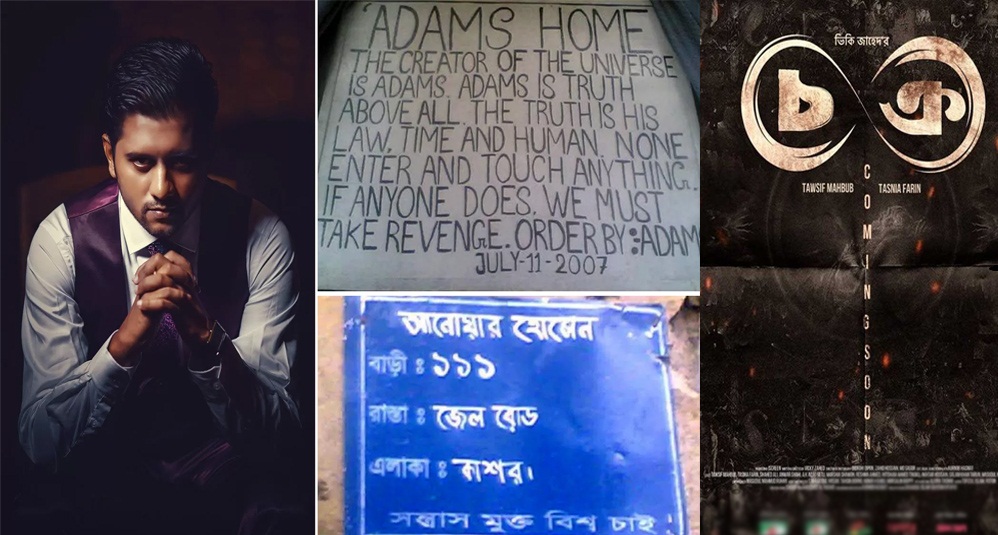 'ADAMS HOME
THE CREATOR OF THE UNIVERSE
IS ADAMS. ADAMS IS TRUTH
ABOVE ALL. THE TRUTH IS HIS
LAW, TIME AND HUMAN. NONE
ENTER AND TOUCH ANYTHING.
IF ANYONE DOES, WE MUST
TAKE REVENGE. ORDER BY:ADAM
JULY-11-2007
আনোয়ার হোসেন
বাড়ী : ১১১
রাস্তা : জেল রোড
এলাকা : কাশর।
সন্ত্রাস মুক্ত বিশ্ব চাই
ভিকি জাহেদ'র
চক্র
TAWSIF MAHBUB TASNIA FARIN
COMING SOON